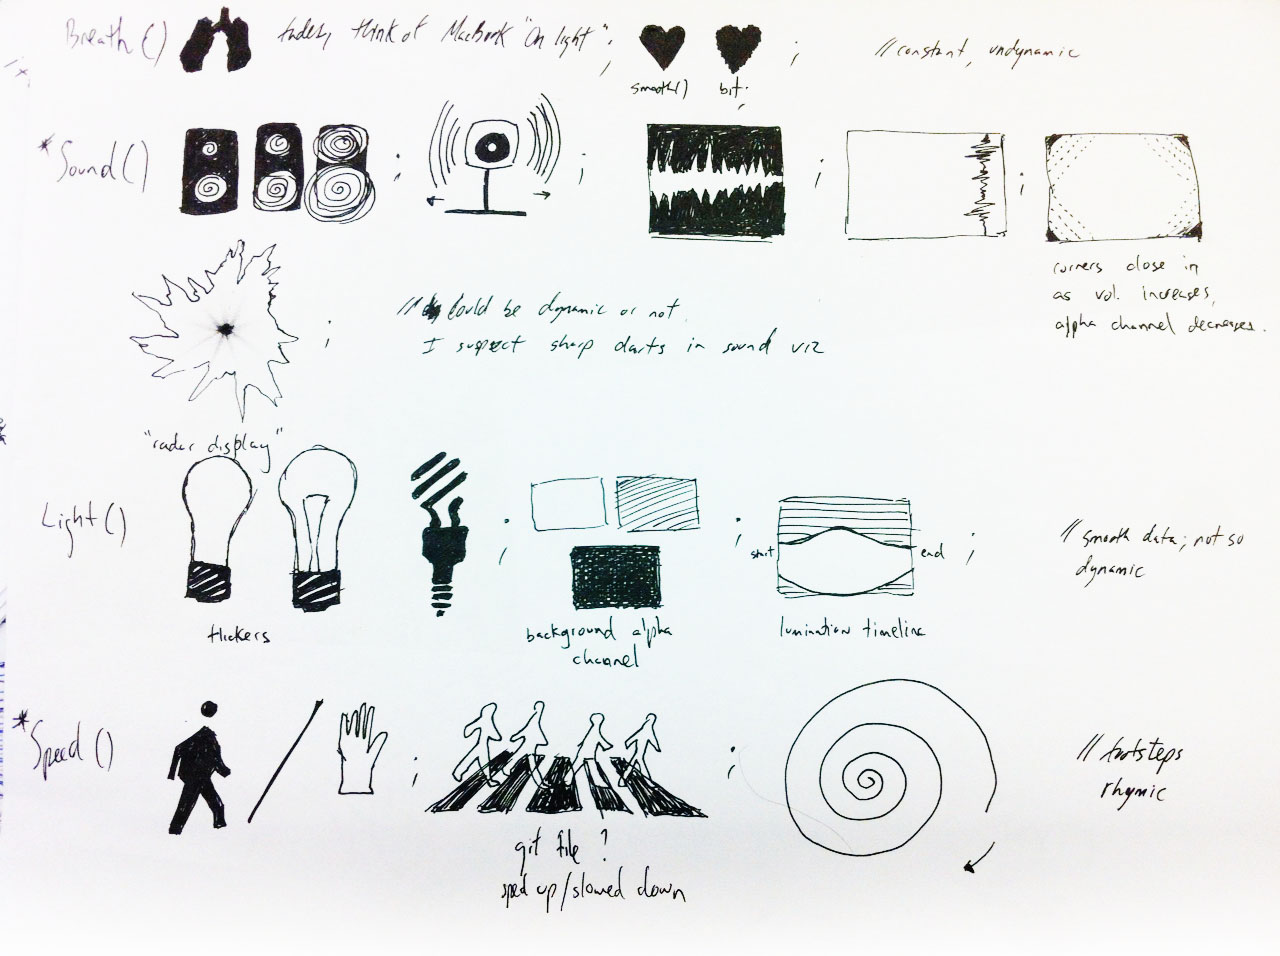 Breath () fades, think of MacBook "On light"; ; // constant, undynamic
smooth() bit.
* Sound () ; ; ; ;
corners close in
as vol. increases,
alpha channel decreases.
; // Could be dynamic or not
I suspect sharp darts in sound viz
"radar display"
Light () ; ; ; // smooth data; not so
dynamic
start end
flickers
background alpha
channel
lumination timeline
* Speed () / ; ; // footsteps
rhymic
gif file?
sped up/slowed down